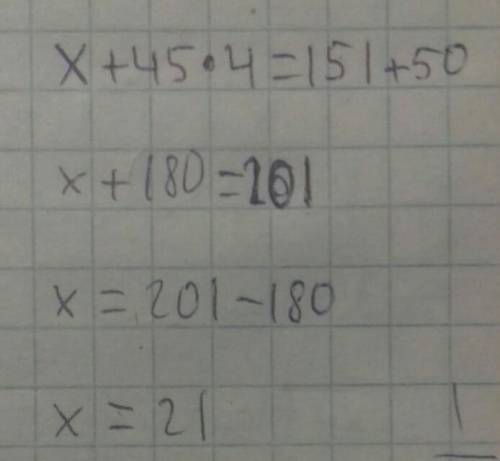 x+45•4=151+50
x+180=201
x=201-180
x=21
1